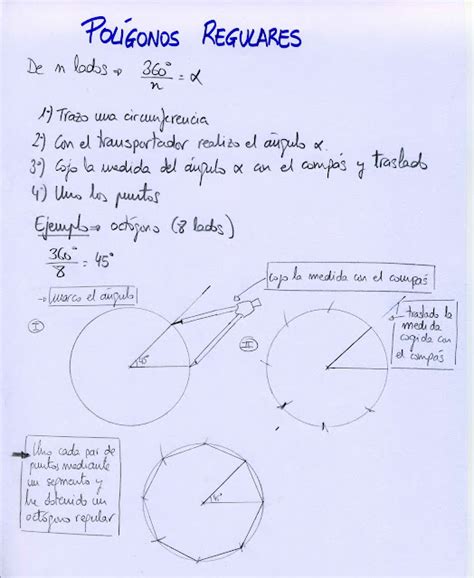 POLÍGONOS REGULARES
De n lados → 360°/n = α
1º) Trazo una circunferencia
2º) Con el transportador realizo el ángulo α.
3º) Cojo la medida del ángulo α con el compás y traslado
4) Uno los puntos
Ejemplo → octógono (8 lados)
360°/8 = 45°
cojo la medida con el compás
→ marco el ángulo
I
45°
II
traslado la
medida
cogida con
el compás
Uno cada par de
puntos mediante
un segmento y
he obtenido un
octógono regular
45°